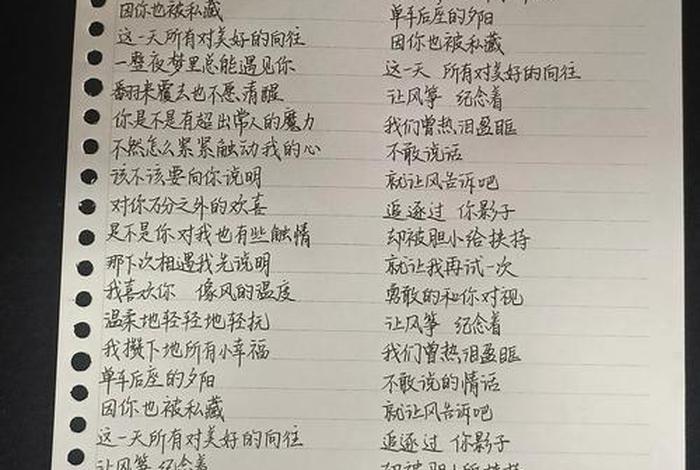 因你也被私藏
这一天所有对美好的向往
一整夜梦里总能遇见你
翻来覆去也不愿清醒
你是不是有超出常人的魔力
不然怎么紧紧触动我的心
该不该要向你说明
对你万分之外的欢喜
是不是你对我也有些触情
那下次相遇我先说明
我喜欢你 像风的温度
温柔地轻轻地轻抚
我撒下地所有小幸福
单车后座的夕阳
因你也被私藏
这一天所有对美好的向往
让风筝 纪念着
单车后座的夕阳
因你也被私藏
这一天 所有对美好的向往
让风筝 纪念着
我们曾热泪盈眶
不敢说话
就让风告诉吧
追逐过 你影子
却被胆小给挟持
就让我再试一次
勇敢的和你对视
让风筝 纪念着
我们曾热泪盈眶
不敢说的情话
就让风告诉吧
追逐过 你影子